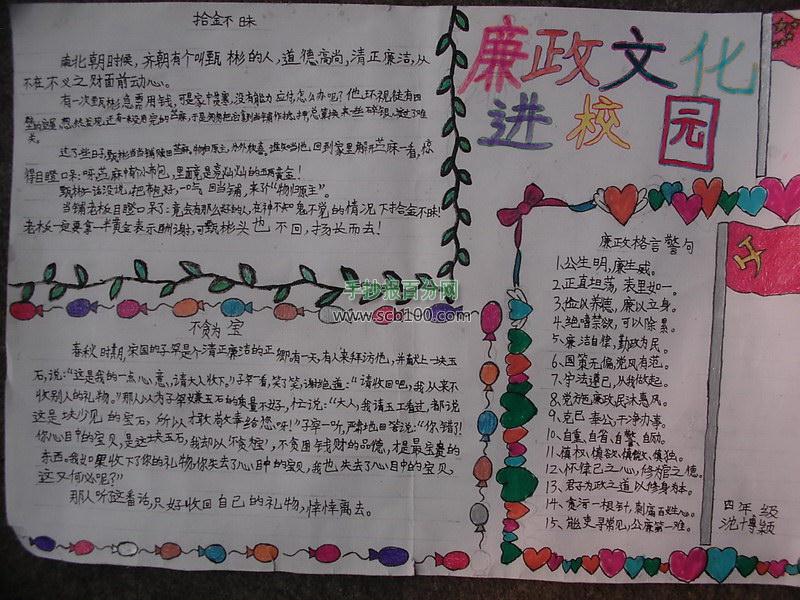 拾金不昧
南北朝时候，齐朝有个叫甄彬的人，道德高尚，清正廉洁，从
不在不义之财面前动心。
有一次甄彬急需用钱，可是家中贫寒，没有能力应付，怎么办呢？他环视徒有四
过了些日子，甄彬当当铺赎回芝麻。物归原主，
得目瞪口呆：呀芝麻中有个小布包，里面竟是亮灿灿的五两黄金！
甄彬二话没说，把
一口气回当铺，来个“物归原主”。
当铺老板目瞪口呆了：竟会有那么好的人，在神不知鬼不觉的情况下拾金不昧！
老板一定要拿一半黄金表示酬谢，可甄彬头也不回，扬长而去！
不贪为宝
春秋时期，宋国的子罕是个清正廉洁的正卿。有一天，有人来拜访他，并献上一块玉
石，说：“这是我的一点心意，请大人收下。”子罕一看，笑了笑，谢绝道：“请收回吧，我从来不
收别人的礼物。”那人以为子罕嫌玉石的质量不好，忙说：“大人，我请玉工看过，都说
这是块少见的宝石，所以才敢奉给您呀！”子罕一听，严肃地回答说：“你错了！
你心目中的宝贝，是这块玉石，我却以‘不贪’为宝，不贪图钱财的品德，才是最宝贵的
东西。我如果收下了你的礼物，你失去了心目中的宝贝，我也失去了心目中的宝贝，
这又何必呢？”
那人听了这番话，只好收回自己的礼物，悻悻离去。
手抄报百分网
www.scb100.com
廉政文化
进校园
廉政格言警句
1、公生明，廉生威。
2、正直坦荡，表里如一。
3、俭以养德，廉以立身。
4、绝嗜禁欲，可以除累。
5、廉洁自律，勤政为民。
6、国策无偏，党风有范。
7、守法遵己，从我做起。
8、党方施廉政民沐惠风。
9、克己奉公，干净办事。
10、自重、自省、自警、自励。
11、慎权、慎欲、慎微、慎独。
12、怀律己之心，修为官之德。
13、君子为政之道以修身为本。
14、贪污一根针，刺痛百姓心。
15、能吏寻常见，公廉第一难。
四年级
沈博颖